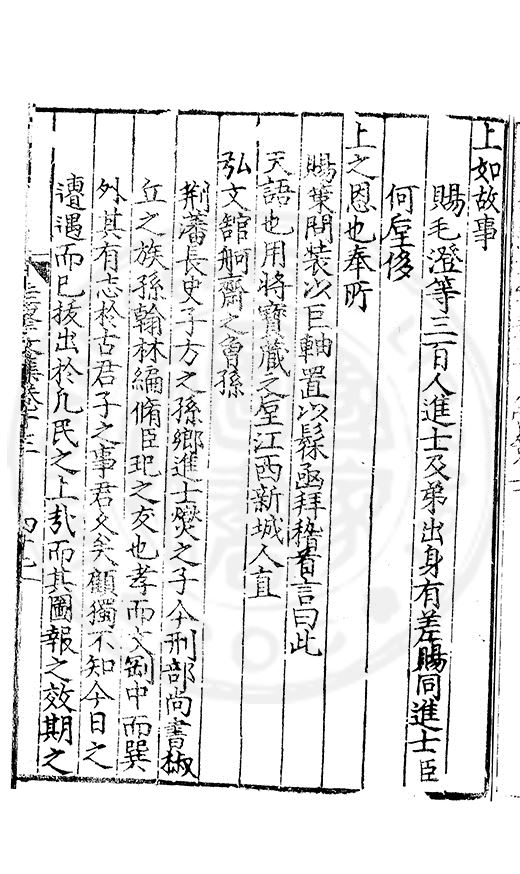 上如故事
賜毛澄等三百人進士及弟出身有差賜同進士臣
何垕侈
上之恩也奉所
賜策問裝以巨軸置以髹函拜稽首言曰此
天語也用將寶藏之垕江西新城人直
弘文館舸齋之曾孫
荆藩長史子方之孫鄉進士爕之子今刑部尚書椒
丘之族孫翰林編脩臣玘之友也孝而文劬中而巽
外其有志於古君子之事君久矣顧獨不知今日之
遭遇而已拔出於凢民之上㢤而其圖報之效期之